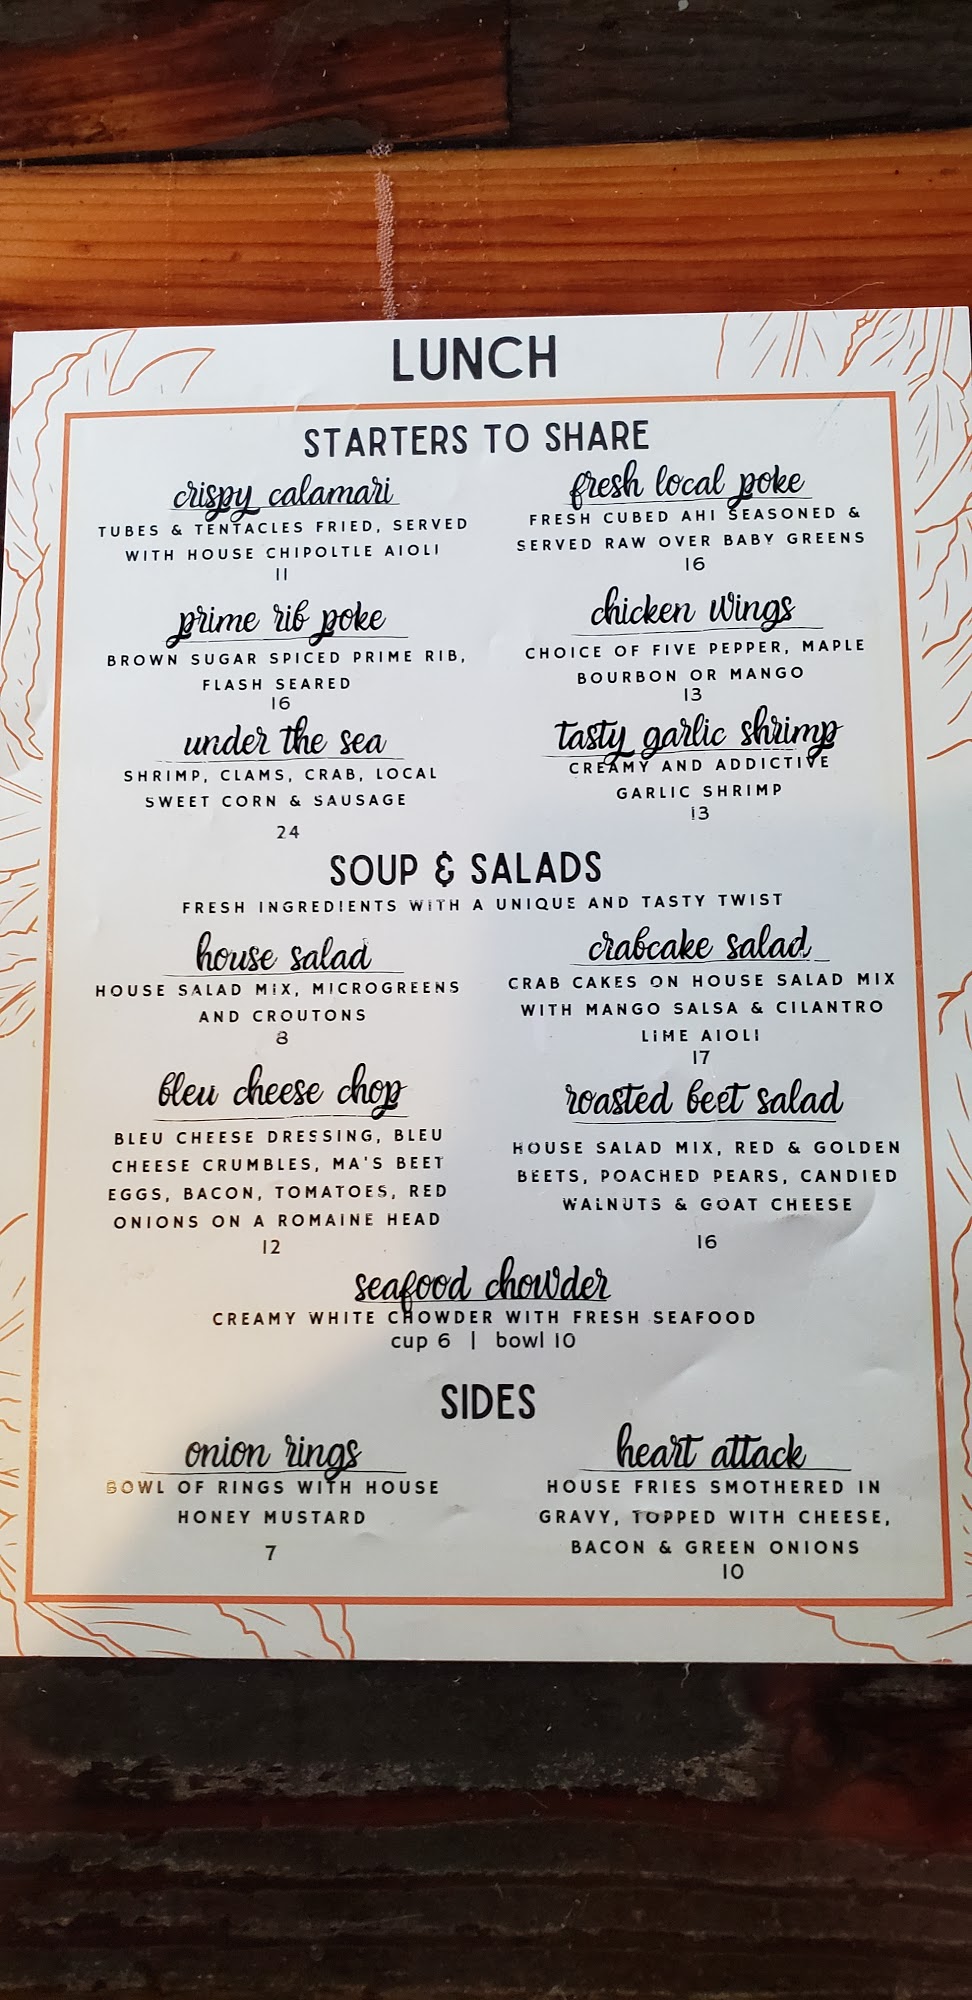 LUNCH
STARTERS TO SHARE
crispy calamari
TUBES & TENTACLES FRIED, SERVED
WITH HOUSE CHIPOLTLE AIOLI
11
fresh local poke
FRESH CUBED AHI SEASONED &
SERVED RAW OVER BABY GREENS
16
prime rib poke
BROWN SUGAR SPICED PRIME RIB,
FLASH SEARED
16
chicken wings
CHOICE OF FIVE PEPPER, MAPLE
BOURBON OR MANGO
13
under the sea
SHRIMP, CLAMS, CRAB, LOCAL
SWEET CORN & SAUSAGE
24
tasty garlic shrimp
CREAMY AND ADDICTIVE
GARLIC SHRIMP
13
SOUP & SALADS
FRESH INGREDIENTS WITH A UNIQUE AND TASTY TWIST
house salad
HOUSE SALAD MIX, MICROGREENS
AND CROUTONS
8
crabcake salad
CRAB CAKES ON HOUSE SALAD MIX
WITH MANGO SALSA & CILANTRO
LIME AIOLI
17
bleu cheese chop
BLEU CHEESE DRESSING, BLEU
CHEESE CRUMBLES, MA'S BEET
EGGS, BACON, TOMATOES, RED
ONIONS ON A ROMAINE HEAD
12
roasted beet salad
HOUSE SALAD MIX, RED & GOLDEN
BEETS, POACHED PEARS, CANDIED
WALNUTS & GOAT CHEESE
16
seafood chowder
CREAMY WHITE CHOWDER WITH FRESH SEAFOOD
cup 6 | bowl 10
SIDES
onion rings
BOWL OF RINGS WITH HOUSE
HONEY MUSTARD
7
heart attack
HOUSE FRIES SMOTHERED IN
GRAVY, TOPPED WITH CHEESE,
BACON & GREEN ONIONS
10